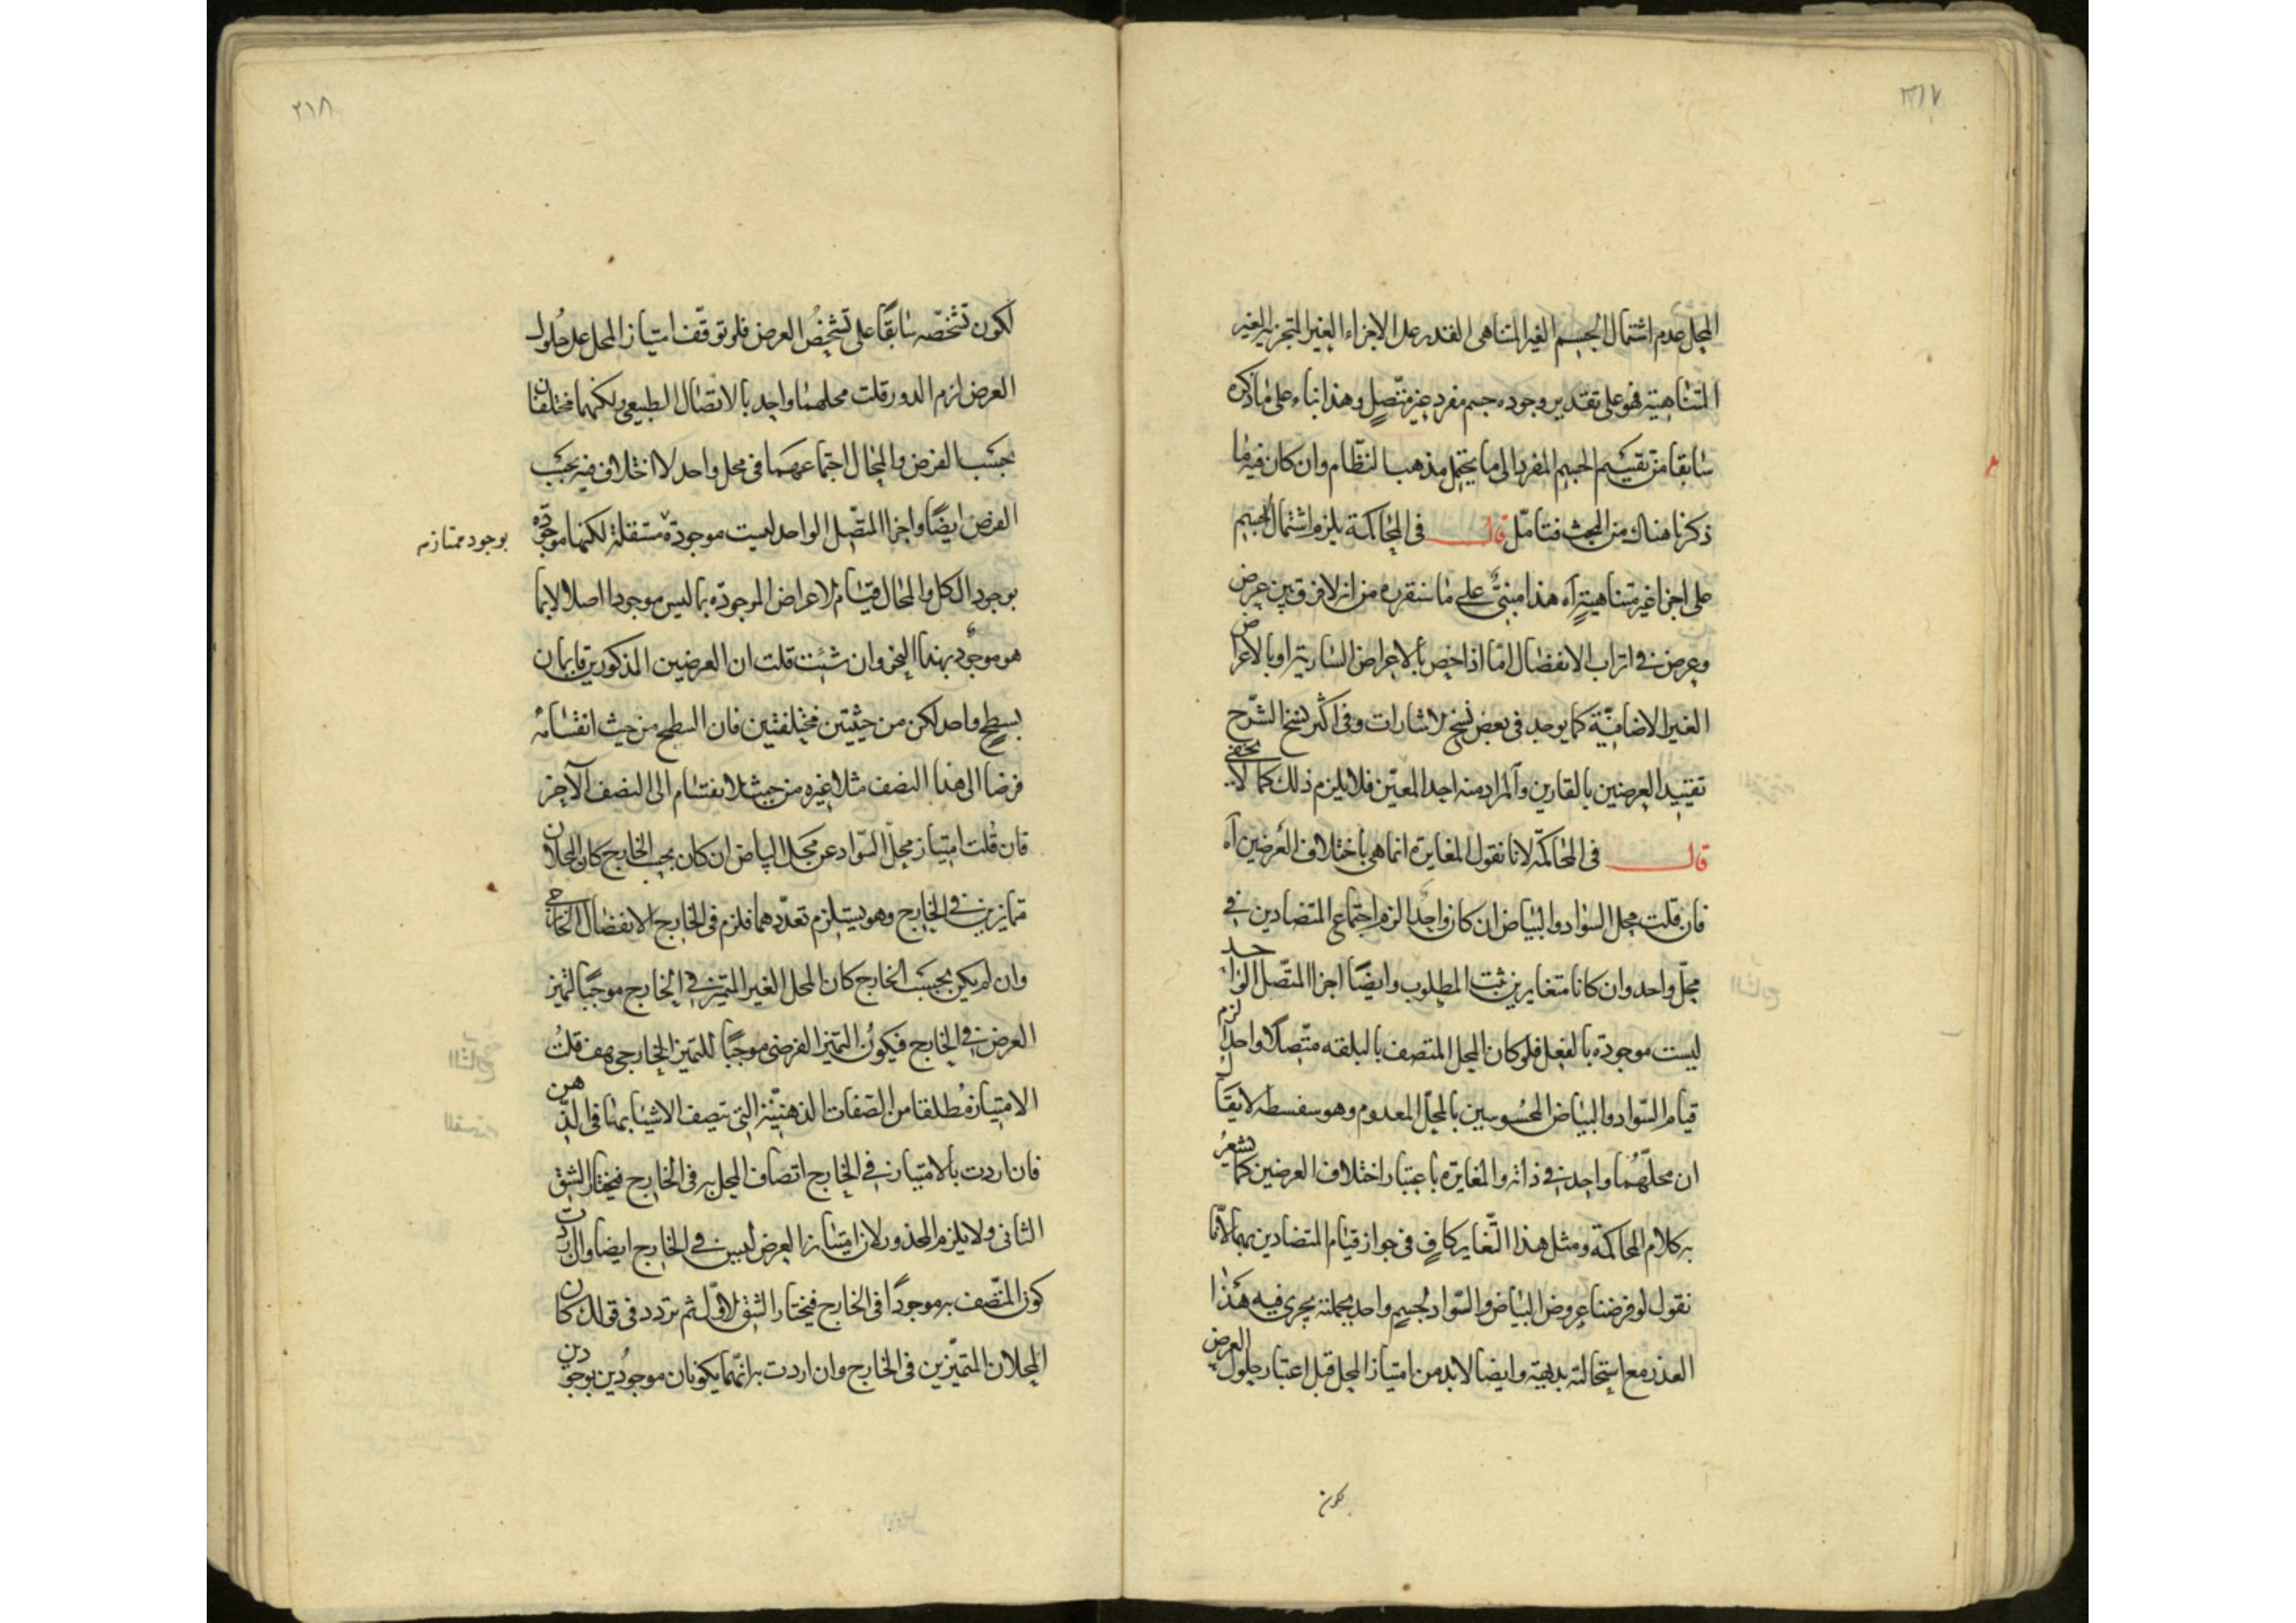 ٢١٧
المحل عدم اشتمال الجسم الغير المتناهى القدر على الاجزاء الغير المتجزية الغير
المتناهية فهو على تقدير وجوده جسم مفرد غير متصل وهذا بناء على ما ذكره
سابقا من تقسيم الجسم المفرد الى ما يحتمل مذهب النظام وان كان فيه ما
ذكرنا هناك من البحث فتامّل قال فى المحاكمة يلزم اشتمال الجسم
على اجزا غير متناهية آه هذا مبنىّ على ما سنقرره من انه لا فرق بين عرض
وعرض فى اثرات الانفصال امّا اذا خص بالاعراض السارية او بالاعراض
الغير الاضافيّة كما يوجد فى بعض نسخ الاشارات وفى اكثر نسخ الشرح
تقييد العرضين بالقارين والمراد منه احد المعنيين فلا يلزم ذلك كما لا يخفى
قال فى المحاكمة لانا نقول المغايرة انما هى باختلاف العرضين آه
فان قلت محل السواد والبياض ان كان واحدا لزم اجتماع المتضادين فى
محلّ واحد وان كانا متغايرين ثبت المطلوب وايضًا اجزا المتّصل الواحد
ليست موجودة بالفعل فلو كان المحل المتصف بالبلقه متّصلا واحدا لزم
قيام السّواد والبياض المحسوسين بالمحلّ المعدوم وهو سفسطه لا يقال
ان محلّهُما واحد فى ذاته والمغايرة باعتبار اختلاف العرضين كما يشعرُ
به كلام المحاكمة ومثل هذا التّغاير كافٍ فى جواز قيام المتضادين بهما لانّا
نقول لو فرضنا عروض البياض والسّواد لجسمٍ واحد بجملته يجرى فيه هذا
العذر مع استحالته بديهة وايضا لابد من امتياز المحل قبل اعتبار حلول العرض
لكون
٢١٨
لكون تشخّصه سابقًا على تشخّصُ العرض فلو توقّف امتياز المحل على حُلول
العرض لزم الدور قلت محلهما واحد بالاتصال الطبيعى ولكنهما مختلفان
بحسب الفرض والمحال اجتماعهما فى محل واحد لا اختلاف فيه بحسب
الفرض ايضًا واجزا المتّصل الواحد ليست موجودة مستقلة لكنها موجودّه
بوجود ممتاز نه
بوجود الكل والمحال قيام الاعراض الموجوده بما ليس موجودا اصلا لا بما
هو موجودٌ بهذا النحو وان شئت قلت ان العرضين المذكورين قايمان
بسطحٍ واحد لكن من حيثيتين مختلفتين فان السطح من حيث انقسامهُ
فرضا الى هذا النصف مثلا غيره من حيث الانقسام الى النصف الآخر
فان قُلت امتياز محلّ السّواد عن محل البياض ان كان بحسب الخارج كان المحلان
متمايزين فى الخارج وهو يستلزم تعدّدهما فلزم فى الخارج الانفصال الخارجى
وان لم يكن بحسب الخارج كان المحل الغير المتميّز فى الخارج موجبًا لتميز
العرض فى الخارج فيكونُ التميّز الفرضى موجبًا للتميز الخارجى هف قلتُ
الامتياز مُطلقا من الصّفات الذهنيّة التى تتصف الاشيا بها فى الذّهن
فان اردت بالامتياز فى الخارج اتصاف المحل به فى الخارج فيختار الشق
الثانى ولا يلزم المحذور لان امتياز العرض ليس فى الخارج ايضا وان اردت
كون المتّصف به موجودًا فى الخارج فيختار الشق الاوّل ثم تردد فى قولك كان
المحلان المتميّزين فى الخارج وان اردت به انّهما يكونان موجُودين بوجودين